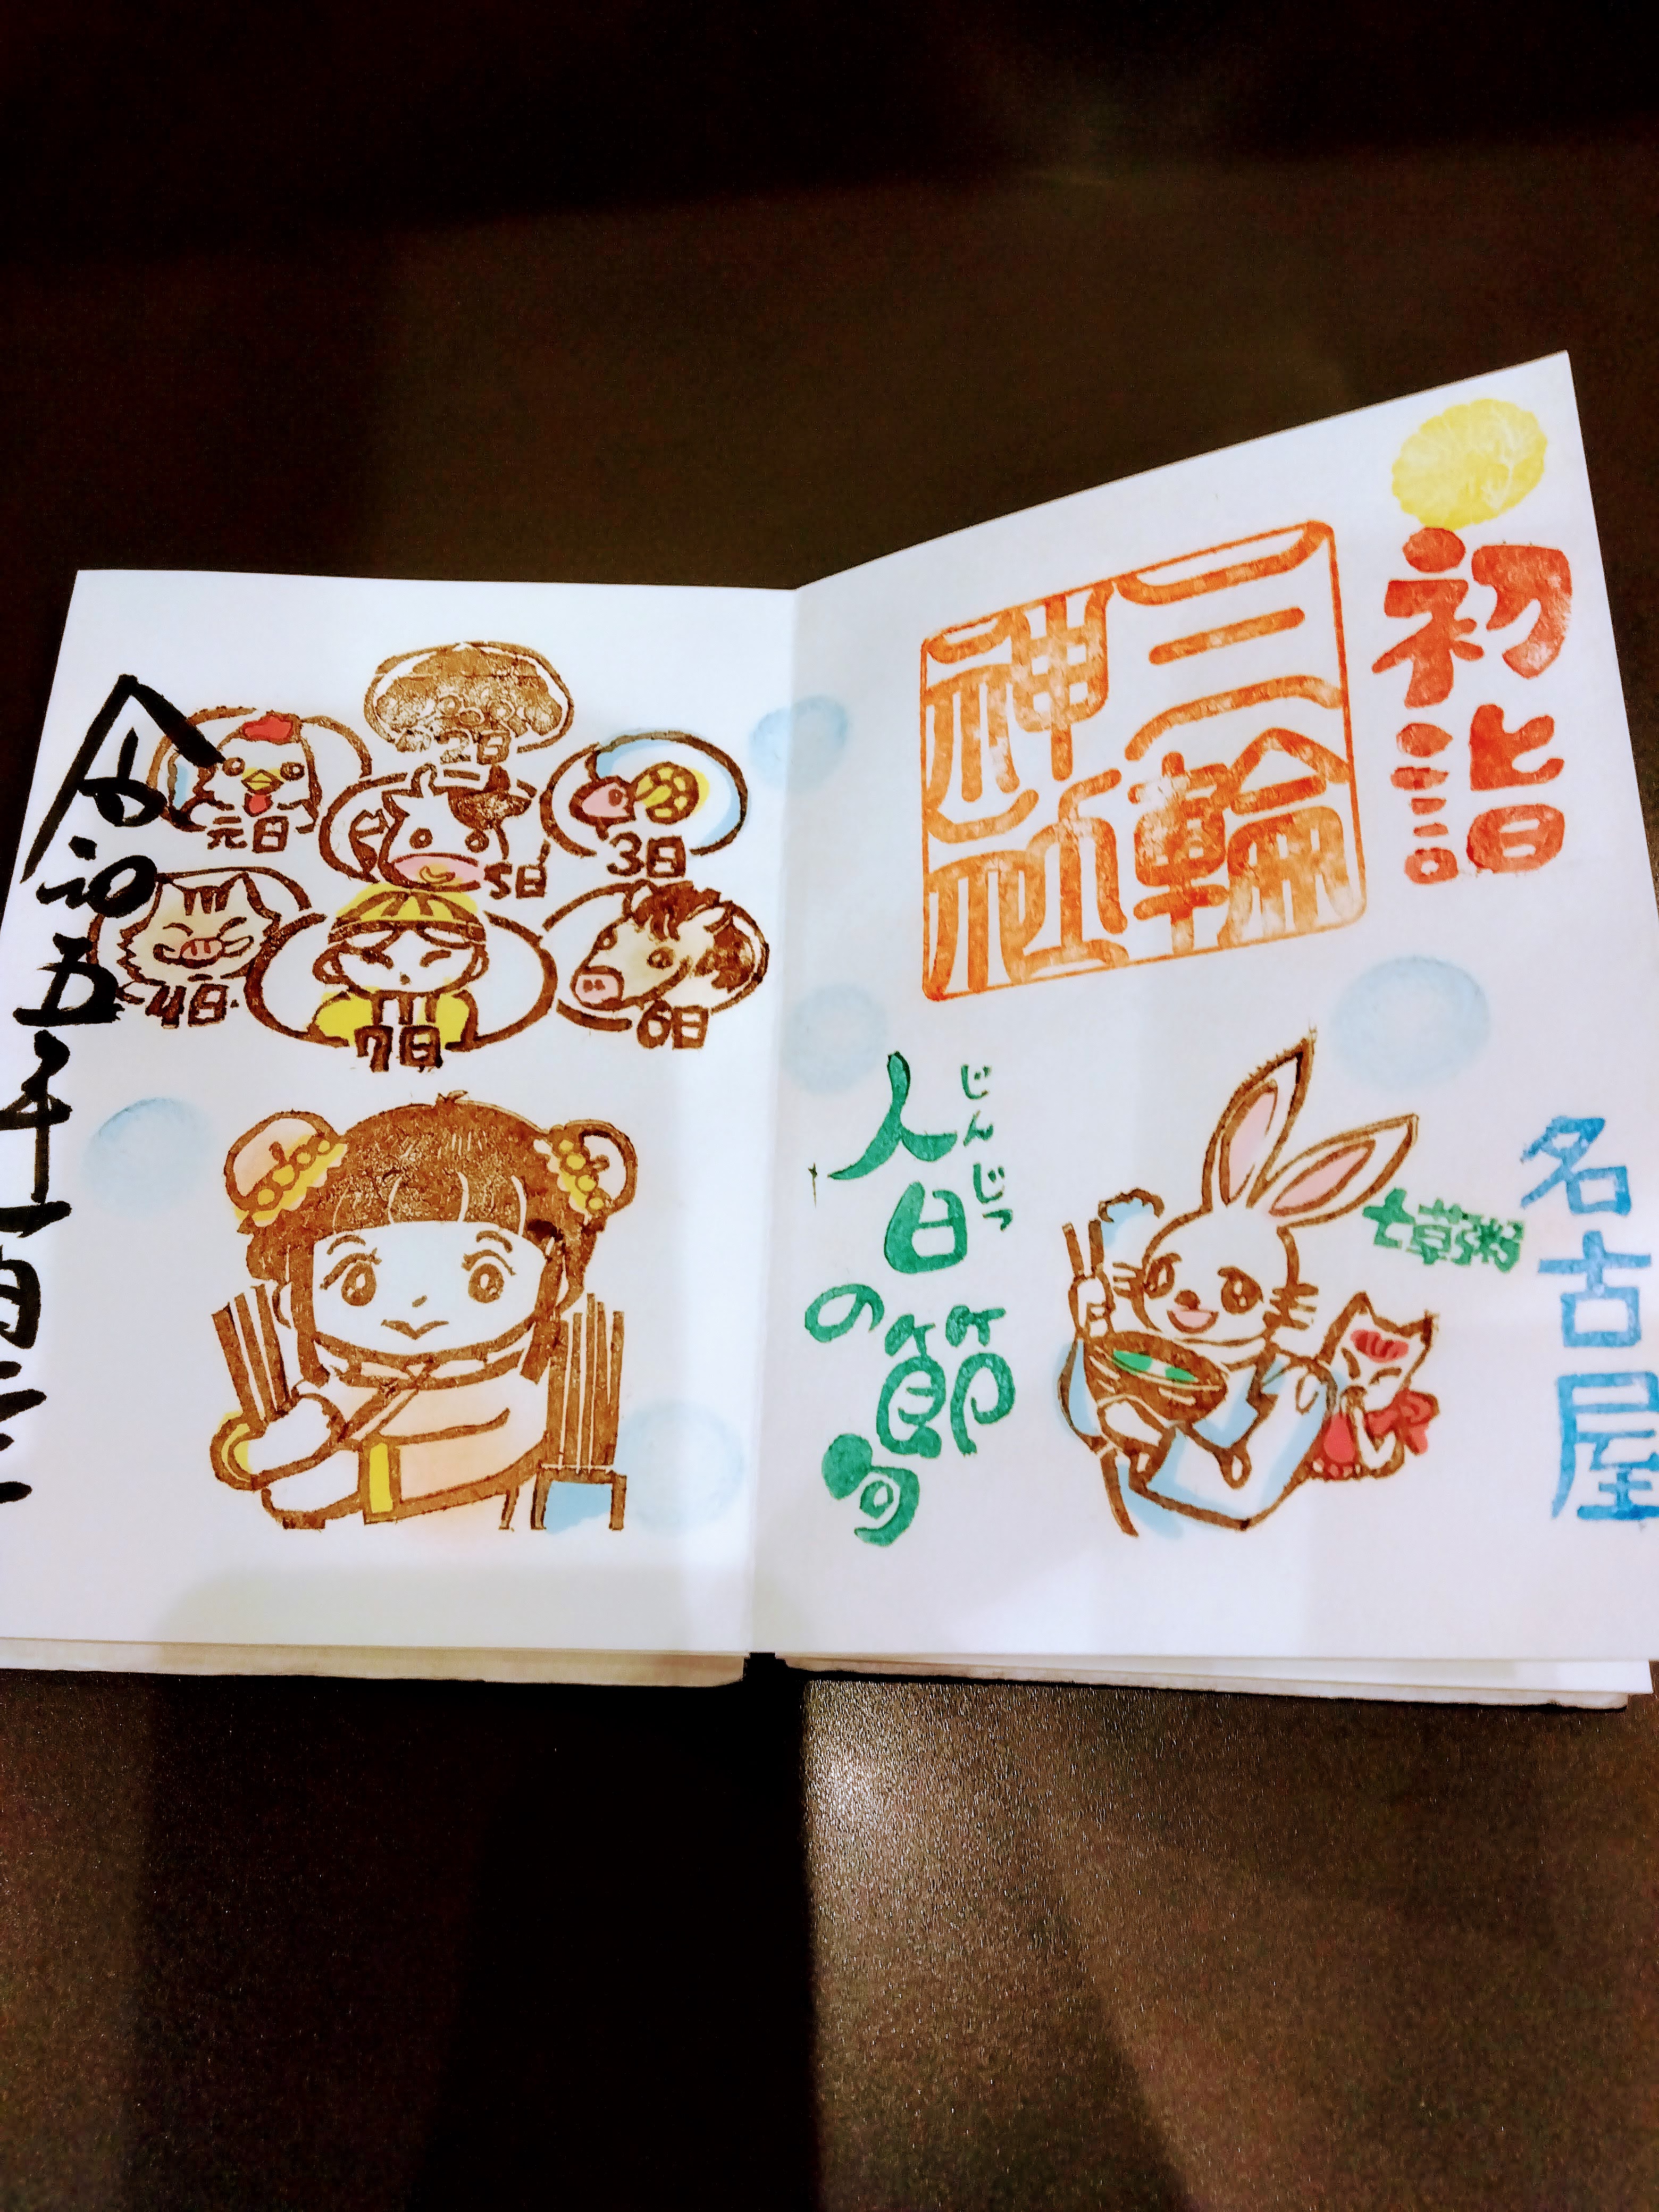 初詣
三輪
神社
名古屋
七草粥
じんじつ
人日の節句
元日
2日
3日
5日
4日
7日
6日
令和五年一月